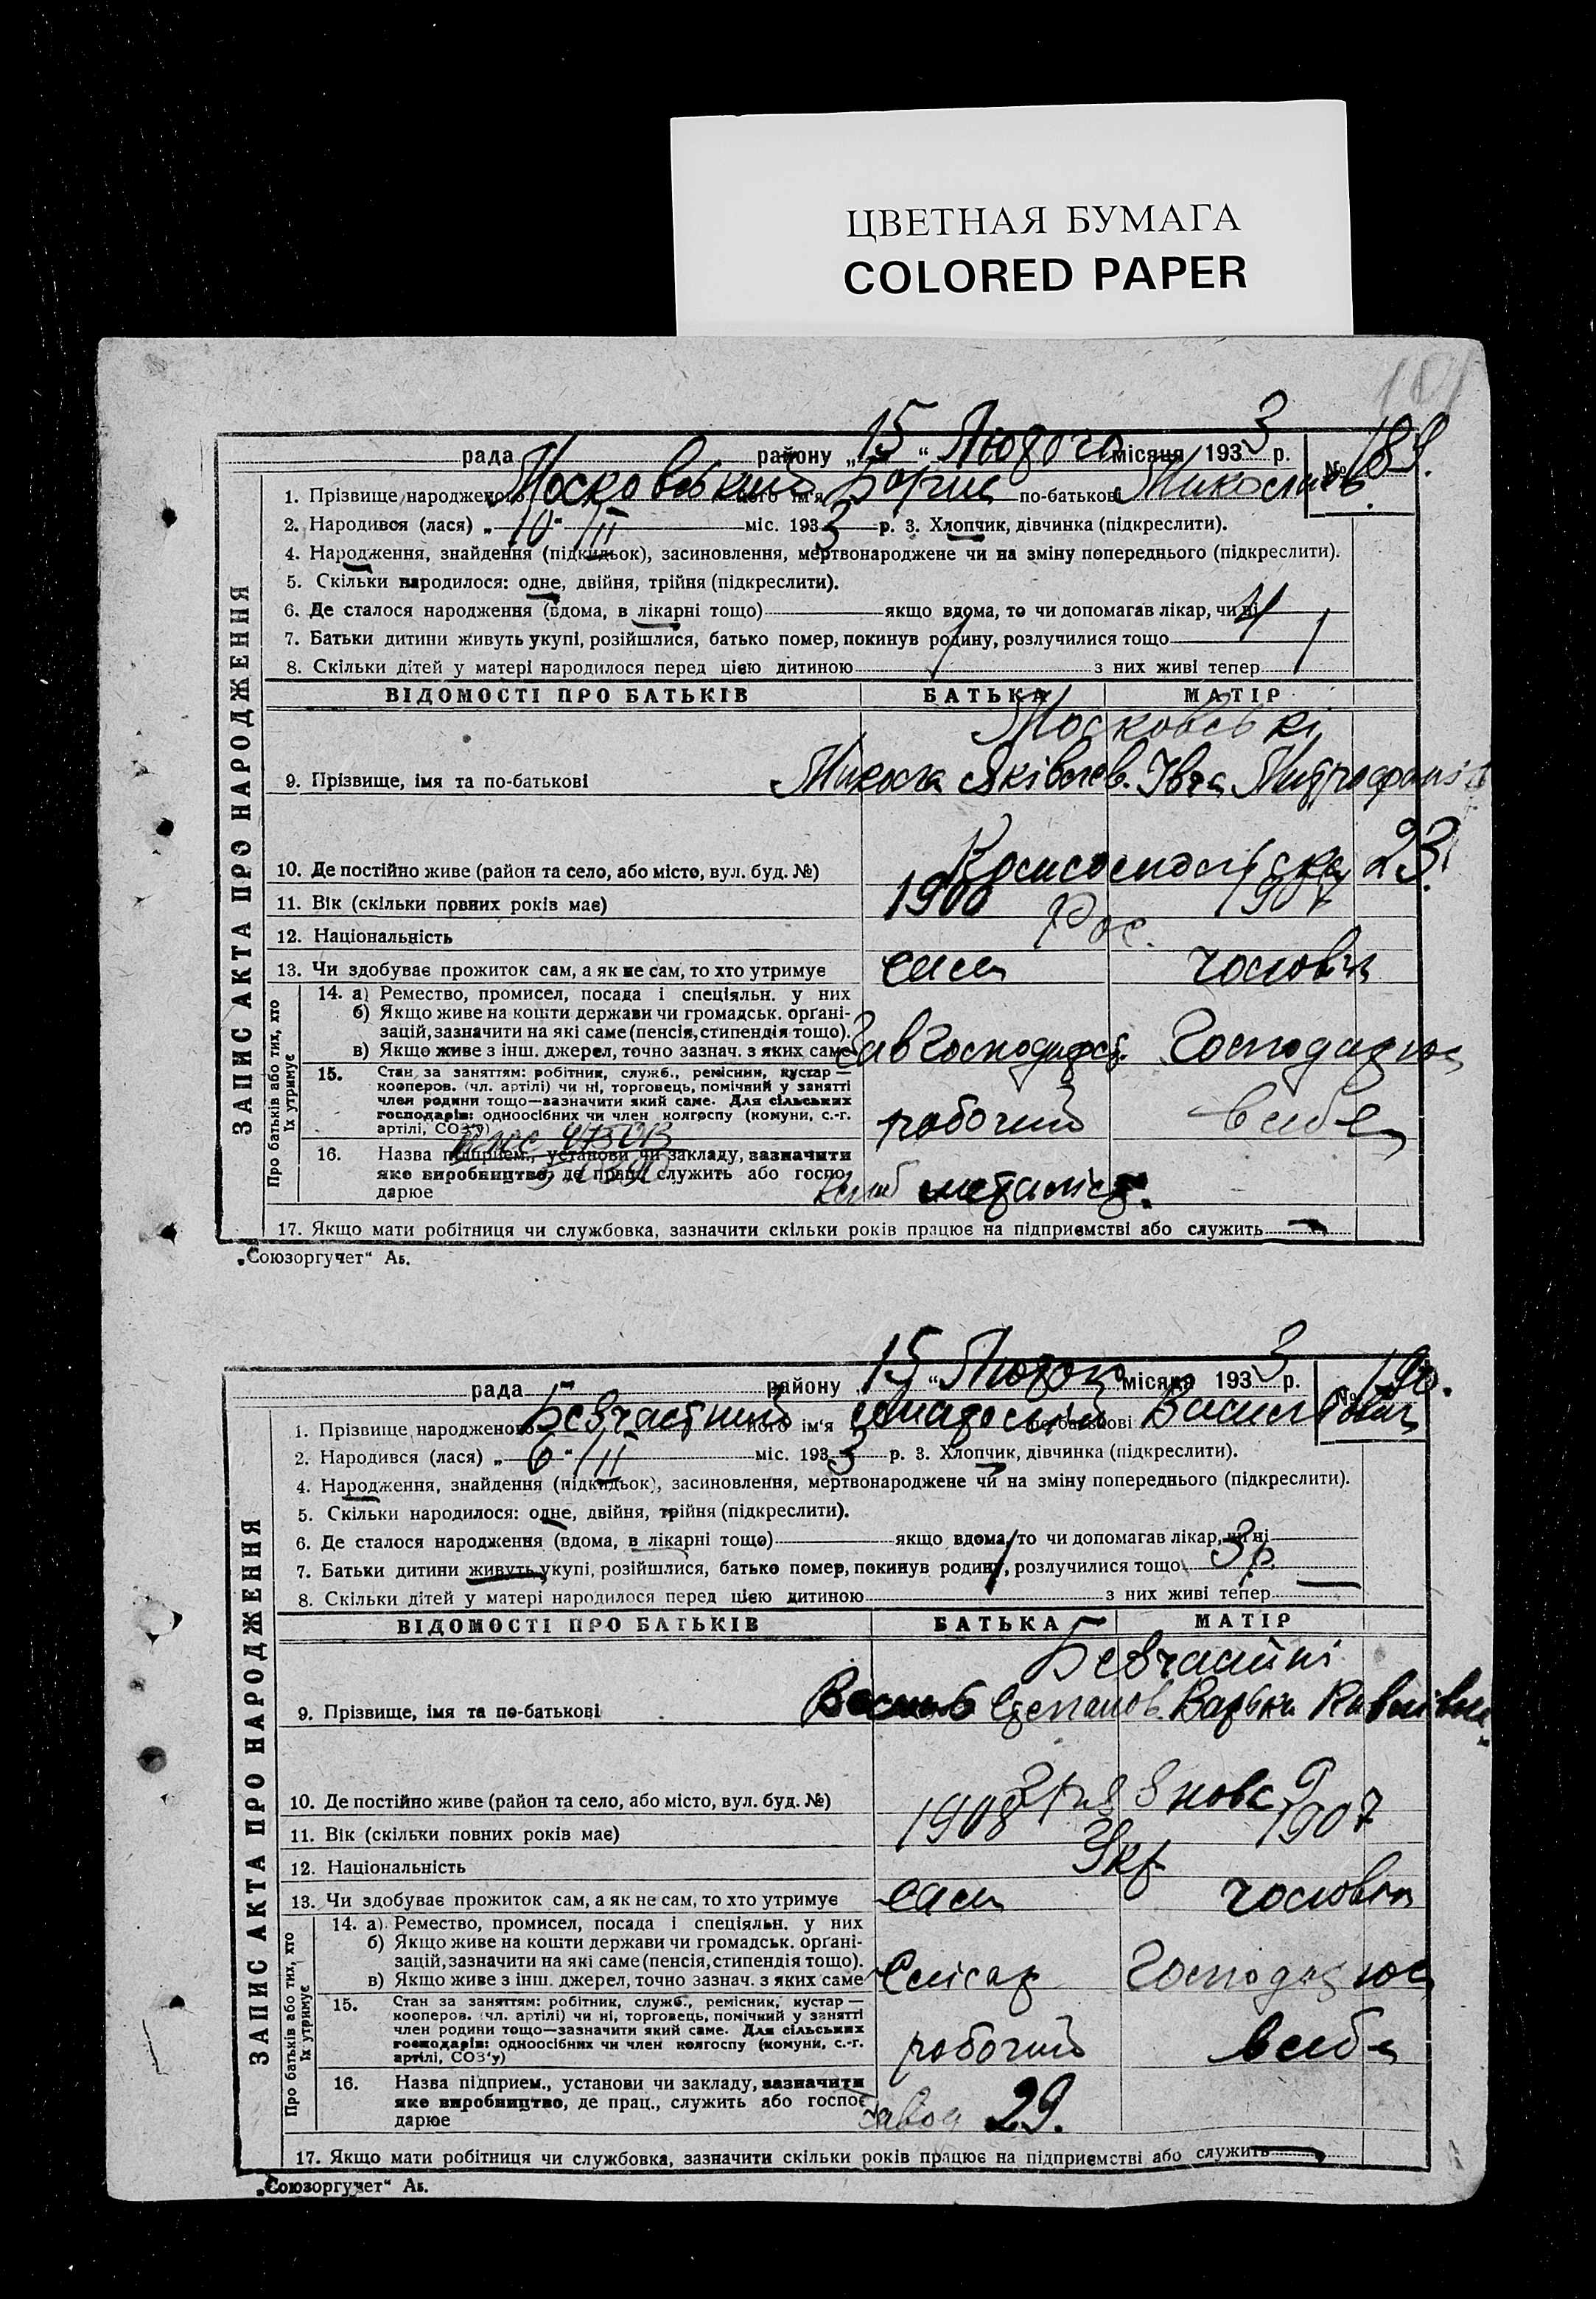 ЦВЕТНАЯ БУМАГА
COLORED PAPER
рада району „15“ Лютого місяця 1933 р. № 189.
1. Прізвище народженого Московський його ім'я Борис по-батькові Миколаїв.
2. Народився (лася) „10“ II міс. 1933 р. 3. Хлопчик, дівчинка (підкреслити).
4. Народження, знайдення (підкидьок), засиновлення, мертвонароджене чи на зміну попереднього (підкреслити).
5. Скільки народилося: одне, двійня, трійня (підкреслити).
6. Де сталося народження (вдома, в лікарні тощо) якщо вдома, то чи допомагав лікар, чи ні
7. Батьки дитини живуть укупі, розійшлися, батько помер, покинув родину, розлучилися тощо
8. Скільки дітей у матері народилося перед цією дитиною 1 з них живі тепер 1
ВІДОМОСТІ ПРО БАТЬКІВ БАТЬКА МАТІР
Московські
9. Прізвище, імя та по-батькові Микола Яківлев. Івга Митрофанів
10. Де постійно живе (район та село, або місто, вул. буд. №) Комсомольська 23.
11. Вік (скільки повних років має) 1900 1907
12. Національність Рос.
13. Чи здобуває прожиток сам, а як не сам, то хто утримує сам чоловік
14. а) Ремество, промисел, посада і спеціяльн. у них
б) Якщо живе на кошти держави чи громадськ. органі-
зацій, зазначити на які саме (пенсія, стипендія тощо).
в) Якщо живе з інш. джерел, точно зазнач. з яких саме Завгосподарст. Господарює
15. Стан за заняттям: робітник, служб., ремісник, кустар —
кооперов. (чл. артілі) чи ні, торговець, помічний у занятті
член родини тощо—зазначити який саме. Для сільських
господарів: одноосібних чи член колгоспу (комуни, с.-г.
артілі, СОЗ'у) робочий в себе
16. Назва підприєм., установи чи закладу, зазначити
яке виробництво, де прац., служить або госпо-
дарює клуб металіст.
17. Якщо мати робітниця чи службовка, зазначити скільки років працює на підприємстві або служить
ЗАПИС АКТА ПРО НАРОДЖЕННЯ
Про батьків або тих, хто їх утримує
„Союзоргучет“ Аб.
рада району „15“ Лютого місяця 1933 р. № 190.
1. Прізвище народженого Безчастний його ім'я Анатолій по-батькові Васильович
2. Народився (лася) „6“ II міс. 1933 р. 3. Хлопчик, дівчинка (підкреслити).
4. Народження, знайдення (підкидьок), засиновлення, мертвонароджене чи на зміну попереднього (підкреслити).
5. Скільки народилося: одне, двійня, трійня (підкреслити).
6. Де сталося народження (вдома, в лікарні тощо) якщо вдома, то чи допомагав лікар, чи ні
7. Батьки дитини живуть укупі, розійшлися, батько помер, покинув родину, розлучилися тощо 3 р.
8. Скільки дітей у матері народилося перед цією дитиною з них живі тепер
ВІДОМОСТІ ПРО БАТЬКІВ БАТЬКА МАТІР
Безчастні
9. Прізвище, імя та по-батькові Василь Степанов. Варька
10. Де постійно живе (район та село, або місто, вул. буд. №) 9
11. Вік (скільки повних років має) 1908 1907
12. Національність Укр
13. Чи здобуває прожиток сам, а як не сам, то хто утримує сам чоловік
14. а) Ремество, промисел, посада і спеціяльн. у них
б) Якщо живе на кошти держави чи громадськ. органі-
зацій, зазначити на які саме (пенсія, стипендія тощо).
в) Якщо живе з інш. джерел, точно зазнач. з яких саме Слісар Господарює
15. Стан за заняттям: робітник, служб., ремісник, кустар —
кооперов. (чл. артілі) чи ні, торговець, помічний у занятті
член родини тощо—зазначити який саме. Для сільських
господарів: одноосібних чи член колгоспу (комуни, с.-г.
артілі, СОЗ'у) робочий в себе
16. Назва підприєм., установи чи закладу, зазначити
яке виробництво, де прац., служить або госпо-
дарює Завод 29.
17. Якщо мати робітниця чи службовка, зазначити скільки років працює на підприємстві або служить
ЗАПИС АКТА ПРО НАРОДЖЕННЯ
Про батьків або тих, хто їх утримує
„Союзоргучет“ Аб.